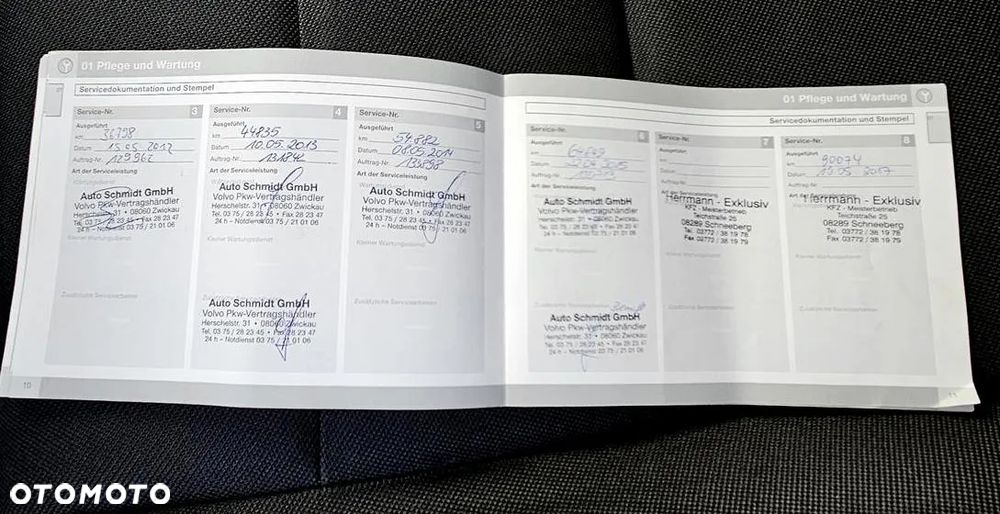 01 Pflege und Wartung
Servicedokumentation und Stempel
Service-Nr. 3
Ausgeführt
km 36798
Datum 15.05.2012
Auftrag-Nr. 129962
Art der Serviceleistung
Wartungsdienst
Auto Schmidt GmbH
Volvo Pkw-Vertragshändler
Herschelstr. 31 • 08060 Zwickau
Tel. 03 75 / 28 23 45 • Fax 28 23 47
24 h – Notdienst 03 75 / 21 01 06
Kleiner Wartungsdienst
Zusätzliche Servicearbeiten
Service-Nr. 4
Ausgeführt
km 44835
Datum 10.05.2013
Auftrag-Nr. 131842
Art der Serviceleistung
Auto Schmidt GmbH
Volvo Pkw-Vertragshändler
Herschelstr. 31 • 08060 Zwickau
Tel. 03 75 / 28 23 45 • Fax 28 23 47
24 h – Notdienst 03 75 / 21 01 06
Kleiner Wartungsdienst
Auto Schmidt GmbH
Volvo Pkw-Vertragshändler
Herschelstr. 31 • 08060 Zwickau
Tel. 03 75 / 28 23 45 • Fax 28 23 47
24 h – Notdienst 03 75 / 21 01 06
Service-Nr. 5
Ausgeführt
km 54882
Datum 08.05.2014
Auftrag-Nr. 133898
Art der Serviceleistung
Auto Schmidt GmbH
Volvo Pkw-Vertragshändler
Herschelstr. 31 • 08060 Zwickau
Tel. 03 75 / 28 23 45 • Fax 28 23 47
24 h – Notdienst 03 75 / 21 01 06
Kleiner Wartungsdienst
Zusätzliche Servicearbeiten
10
01 Pflege und Wartung
Servicedokumentation und Stempel
Service-Nr. 6
Ausgeführt
km
Datum
Auftrag-Nr.
Art der Serviceleistung
Auto Schmidt GmbH
Volvo Pkw-Vertragshändler
Herschelstr. 31 • 08060 Zwickau
Tel. 03 75 / 28 23 45 • Fax 28 23 47
24 h – Notdienst 03 75 / 21 01 06
Kleiner Wartungsdienst
Zusätzliche Servicearbeiten
Auto Schmidt GmbH
Volvo Pkw-Vertragshändler
Herschelstr. 31 • 08060 Zwickau
Tel. 03 75 / 28 23 45 • Fax 28 23 47
24 h – Notdienst 03 75 / 21 01 06
Service-Nr. 7
Ausgeführt
km
Datum
Auftrag-Nr.
Art der Serviceleistung
Herrmann - Exklusiv
KFZ - Meisterbetrieb
Teichstraße 25
08289 Schneeberg
Tel. 03772 / 38 19 78
Fax 03772 / 38 19 79
Kleiner Wartungsdienst
Zusätzliche Servicearbeiten
Service-Nr. 8
Ausgeführt
km 90074
Datum 15.05.2017
Auftrag-Nr.
Art der Serviceleistung
Herrmann - Exklusiv
KFZ - Meisterbetrieb
Teichstraße 25
08289 Schneeberg
Tel. 03772 / 38 19 78
Fax 03772 / 38 19 79
Kleiner Wartungsdienst
Zusätzliche Servicearbeiten
11
OTOMOTO